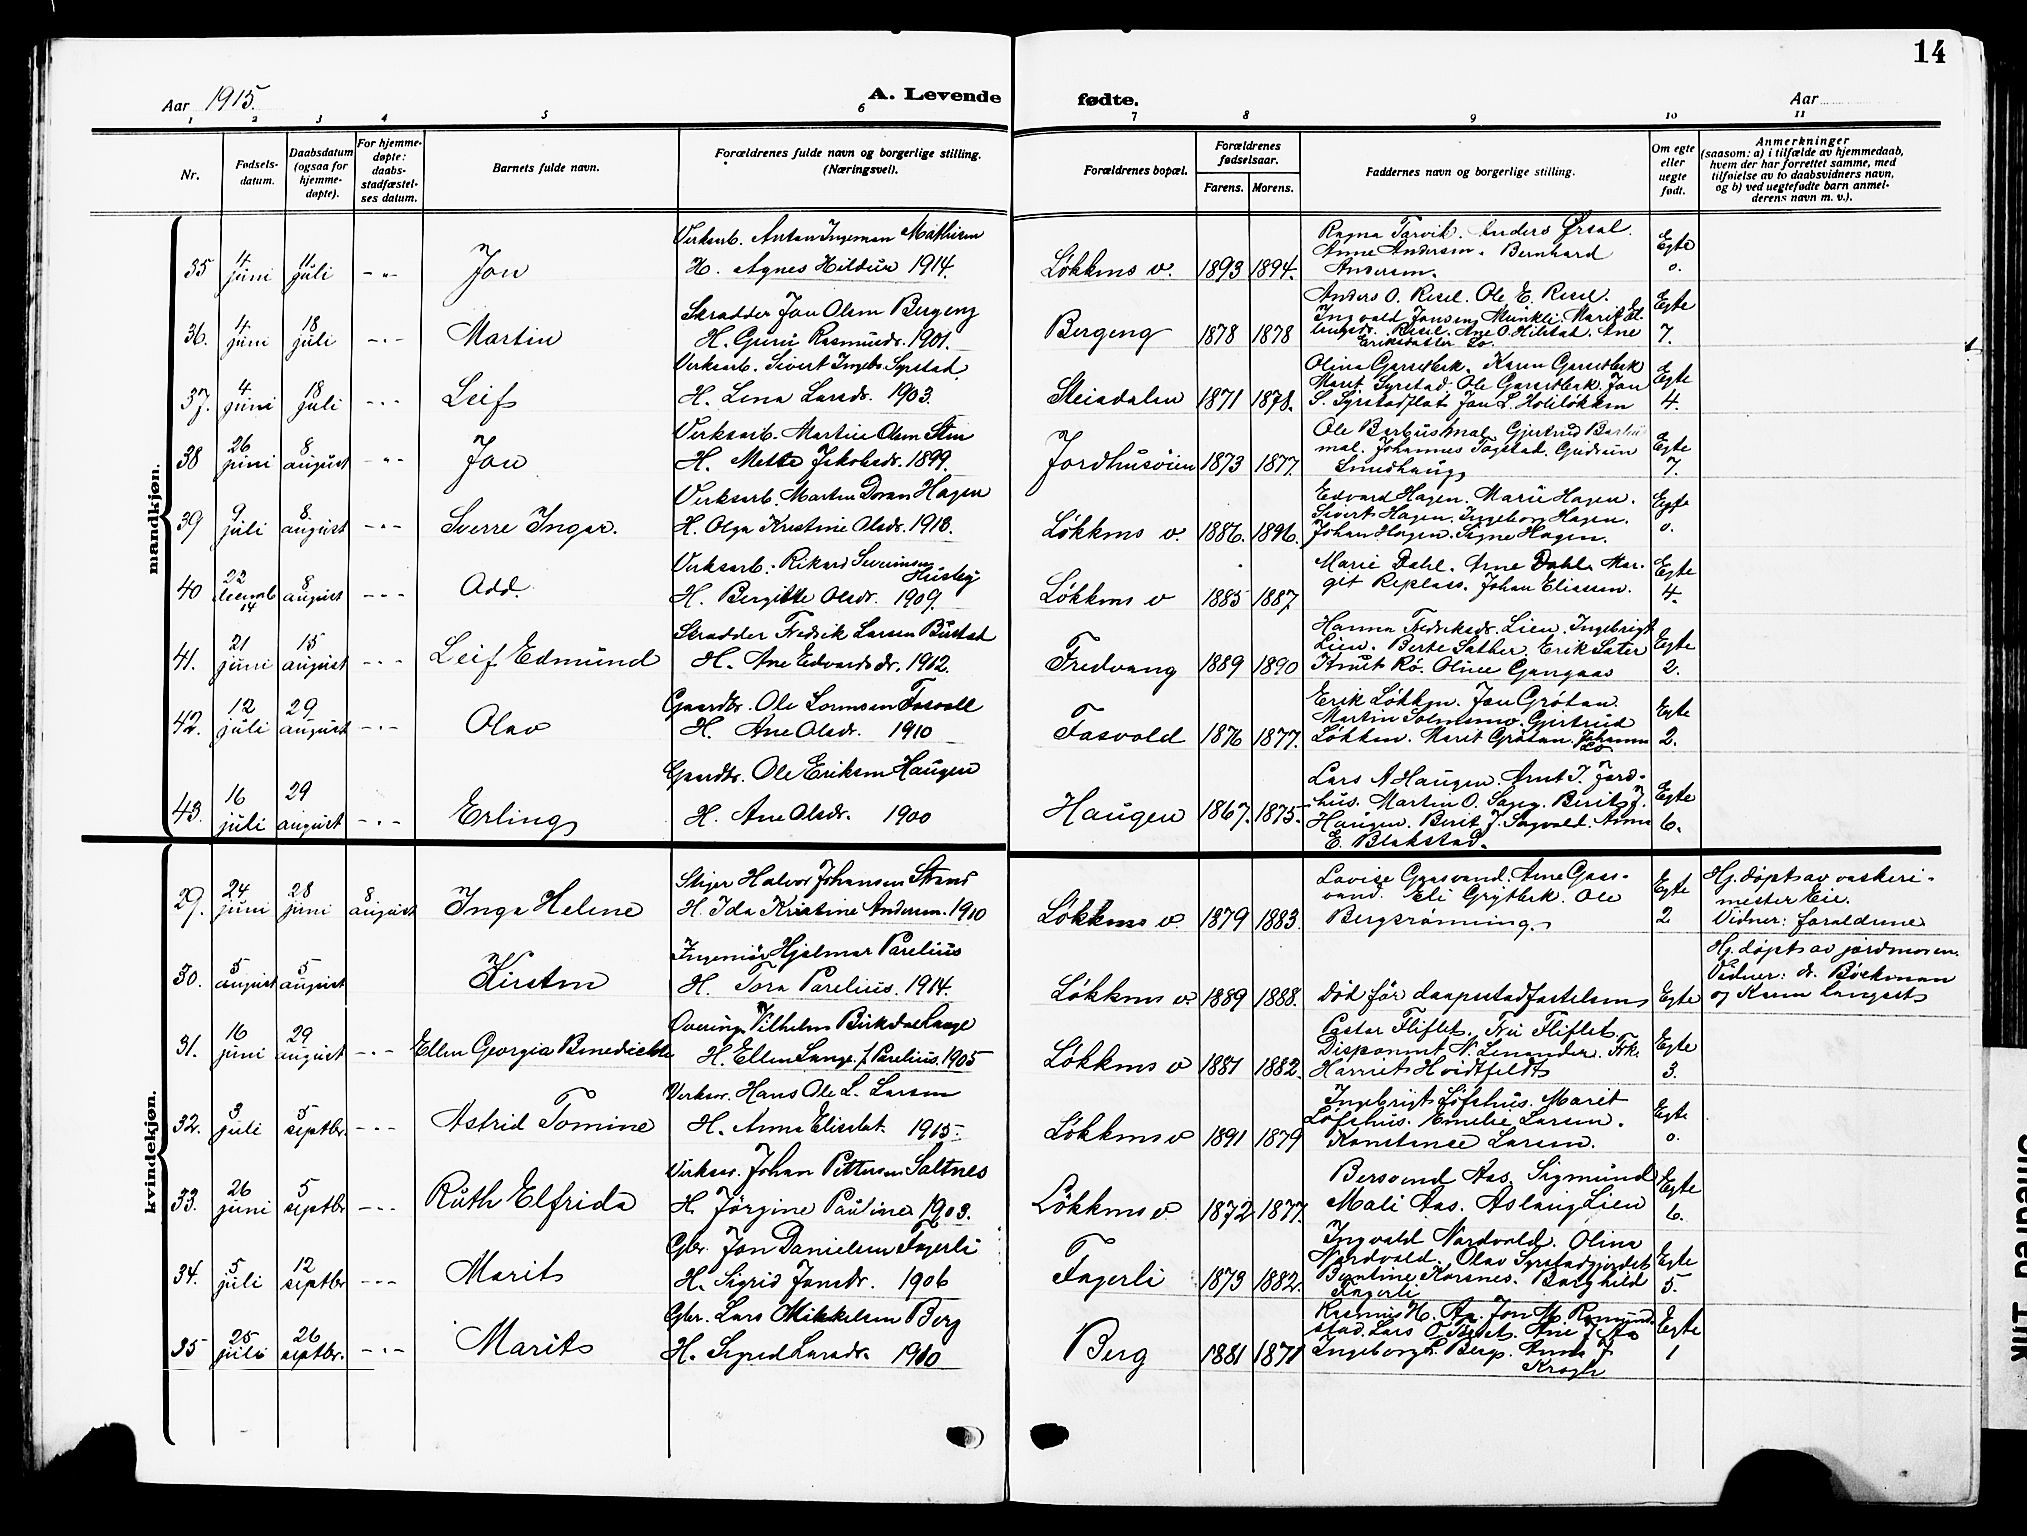 14
Aar 1915.
A. Levende fødte.
Aar
1 2 3 4 5 6 7 8 9 10 11
Nr.
Fødsels-
datum.
Daabsdatum
(ogsaa for
hjemme-
døpte).
For hjemme-
døpte:
daabs-
stadfæstel-
ses datum.
Barnets fulde navn.
Forældrenes fulde navn og borgerlige stilling.
(Næringsvei).
Forældrenes bopæl.
Forældrenes
fødselsaar.
Farens. Morens.
Faddernes navn og borgerlige stilling.
Om egte
eller
uegte
født.
Anmerkninger
(saasom: a) i tilfælde av hjemmedaab,
hvem der har forrettet samme, med
tilføielse av to daabsvidners navn,
og b) ved uegtefødte barn anmel-
derens navn m. v.).
mandkjøn.
35 4 juni 11 juli - " - Jon
Verksarb. Anton Ingeman Mathisen
H. Agnes Hildur 1914.
Løkkens v. 1893 1894.
Ragna Tarvik. Anders Ørsal.
Anne Andersen. Bernhard
Andersen.
Egte
0.
36. 4 juni 18 juli - " - Martin
Skrædder Jon Olsen Bergeng
H. Guru Rasmusdr. 1901.
Bergeng 1878 1878
Anders O. Resel. Ole E. Resel.
Ingvald Jonsen Meinkli. Marit El-
lingsdr. Resel. Ane O. Hilstad. Ane
Eriksdatter Lo.
Egte
7.
37. 4 juni 18 juli - " - Leif
Verksarb. Sivert Ingebr. Syrstad
H. Lina Larsdr. 1903.
Steiadalen 1871 1878.
Olina Garsetbek. Karen Garsetbek
Marit Syrstad. Ole Garsetbek. Jon
S. Syrstadflat Jon L. Holiløkken
Egte
4.
38 26 juni 8 august - " - Jon
Verksarb. Martin Olsen Sten
H. Mette Jakobsdr. 1899.
Jordhusøien 1873 1877.
Ole Barbusmal Gjertrud Barbu
mal. Johannes Fagstad. Gudrun
Smedhaug
Egte
7.
39 9 juli 8 august - " - Sverre Ingar.
Verksarb. Martin Doran Hagen
H. Olga Kristine Olsdr. 1913.
Løkkens v. 1886. 1896.
Edvard Hagen. Marie Hagen.
Sivert Hagen. Ingeborg Hagen.
Johan Hagen. Signe Hagen.
Egte
0.
40 22 decemb 14 8 august - " - Odd.
Verksarb. Rikard Severinsen
Husby
H. Bergitte Olsdr. 1909.
Løkkens v 1885 1887
Marie Dahl. Arne Dahl. Mar-
git Replass. Johan Eliassen.
Egte
4.
41. 21 juni 15 august - " - Leif Edmund
Skrædder Fredrik Larsen Bustad
H. Ane Edvardsdr. 1912.
Fredvang 1889 1890
Hanna Fredriksdr. Lien. Ingebrigt
Lien. Berte Sæther. Erik Sæter
Knut Rø. Oline Gangaas
Egte
2.
42. 12 juli 29 august - " - Olav
Gaardbr. Ole Lornsen Fasvall
H. Ane Olsdr. 1910
Fasvold 1876 1877.
Erik Løkken. Jon Grøtan.
Martin Solemsmo. Gjertrud
Løkken. Marit Grøtan. Johanna
Lo
Egte
2.
43. 16 juli 29 august - " - Erling
Gaardbr. Ole Eriksen Haugen
H. Ane Olsdr. 1900
Haugen 1867. 1875.
Lars A Haugen. Arnt J. Jord-
hus. Martin O. Sagø. Berit J.
Haugen. Berit J. Sagvold. Anne
E. Blakstad.
Egte
6.
kvindekjøn.
29. 24 juni 28 juni 8 august Inga Helene
Stiger Halvor Johansen Strand
H. Ida Kristine Andersen. 1910
Løkkens v. 1879 1883.
Lovise Gaasvand. Arne Gaas-
vand. Eli Grytbek. Ole
Bergsrønning.
Egte
2
Hj. døpt av vaskeri-
mester Eie.
Vidner: forældrene
30. 5 august 5 august Kirsten
Ingeniør Hjalmar Parelius
H. Tora Parelius. 1914.
Løkkens v. 1889 1888.
Død før daapsstadfæstelsen
Egte
Hj. døpt av jordmoren.
Vidner: dr. Bøckman
og Karen Langseth
31. 16 juni 29 august - " - Ellen Georgia Benedichte
Overing. Vilhelm Birkdal Lange
H. Ellen Lange f. Parelius. 1905
Løkkens v 1881 1882.
Pastor Fliflet. Fru Fliflet
Disponent N. Lenander. Frk.
Harriet Hvidtfeldt
Egte
3.
32. 3 juli 5 septbr. - " - Astrid Tomine
Verksar. Hans Ole L. Larsen
H. Anna Elisabet 1915.
Løkkens v 1891 1879
Ingebrigt Løfshus. Marit
Løfshus. Emelie Larsen.
Konstanse Larsen.
Egte
0.
33. 26 juni 5 septbr - " - Ruth Elfrida
Verksar. Johan Pettersen Saltnes
H. Jørgine Pauline 1903.
Løkkens v. 1872 1877.
Bersvend Aas. Sigmund
Mali Aas. Aslaug Lien
Egte
6.
34. 5 juli 12 septbr - " - Marit
Gbr. Jon Danielsen Fagerli
H. Sigrid Jonsdr. 1906
Fagerli 1873 1882.
Ingvald Nordvold. Olina
Nordvold. Olav Syrstadgjerdet
Berntine Korsnes. Borghild
Fagerli
Egte
5.
35 25 juli 26 septbr. - " - Marit
Gbr. Lars Mikkelsen Berg
H. Sigrid Larsdr. 1910
Berg 1881 1871
Rasmus H. Aa. Jon M. Romund-
stad. Lars O. Ane J. Aa
Ingeborg L. Berg. Anne J
Krogh
Egte
1